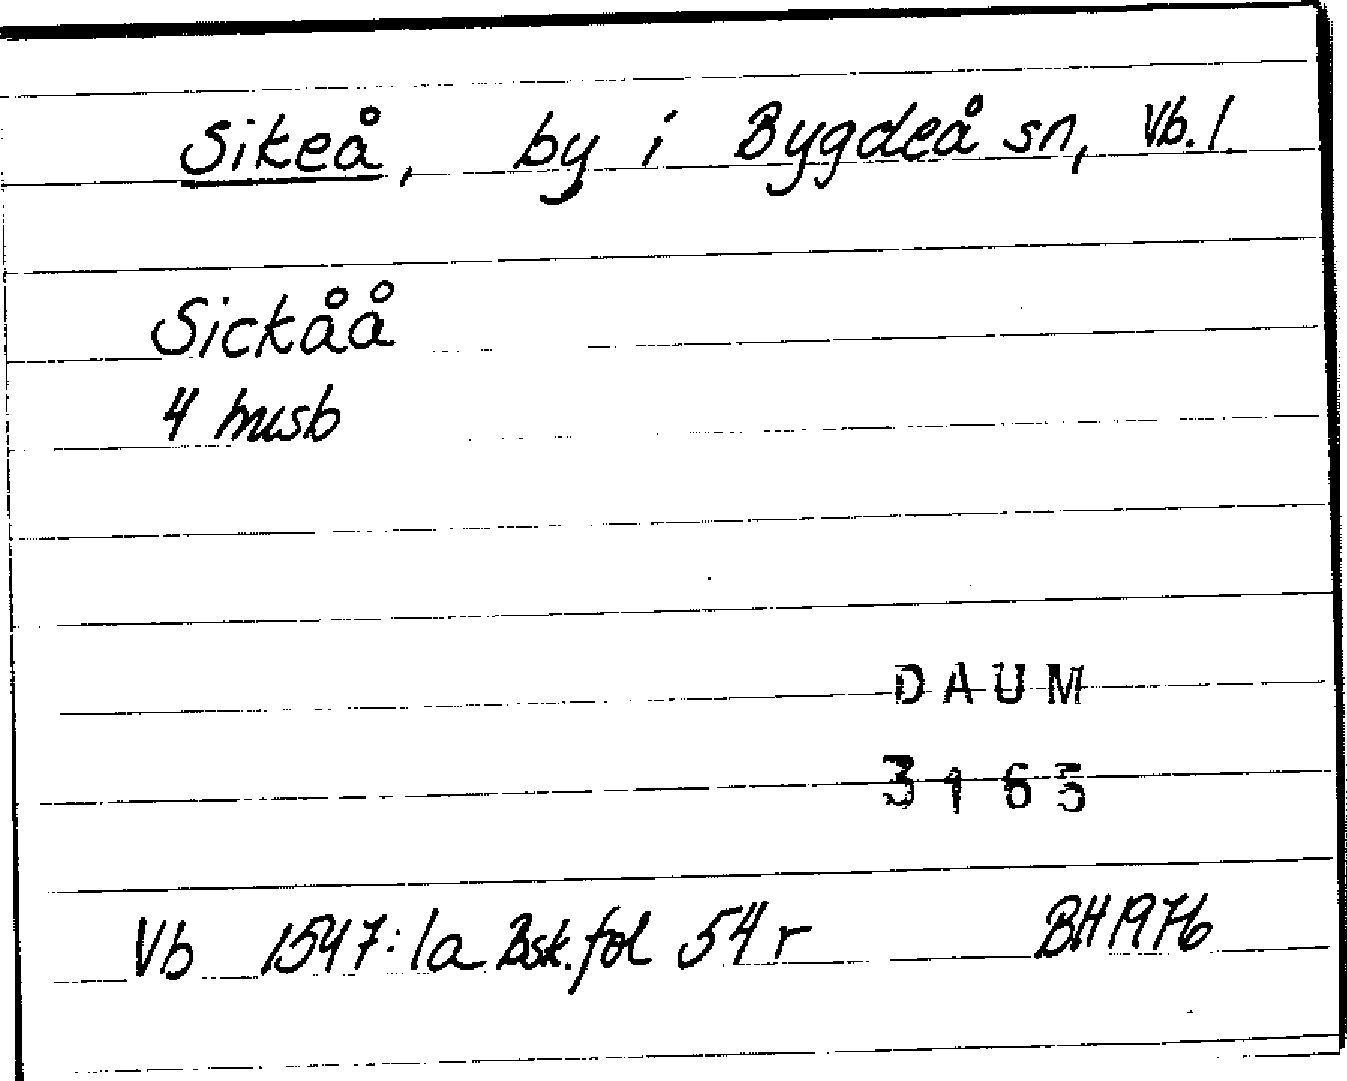 Sikeå, by i Bygdeå sn, Vb. l.
Sickåå
4 husb
DAUM
3165
Vb 1547:1a Bsk. fol 54 r BH 1976